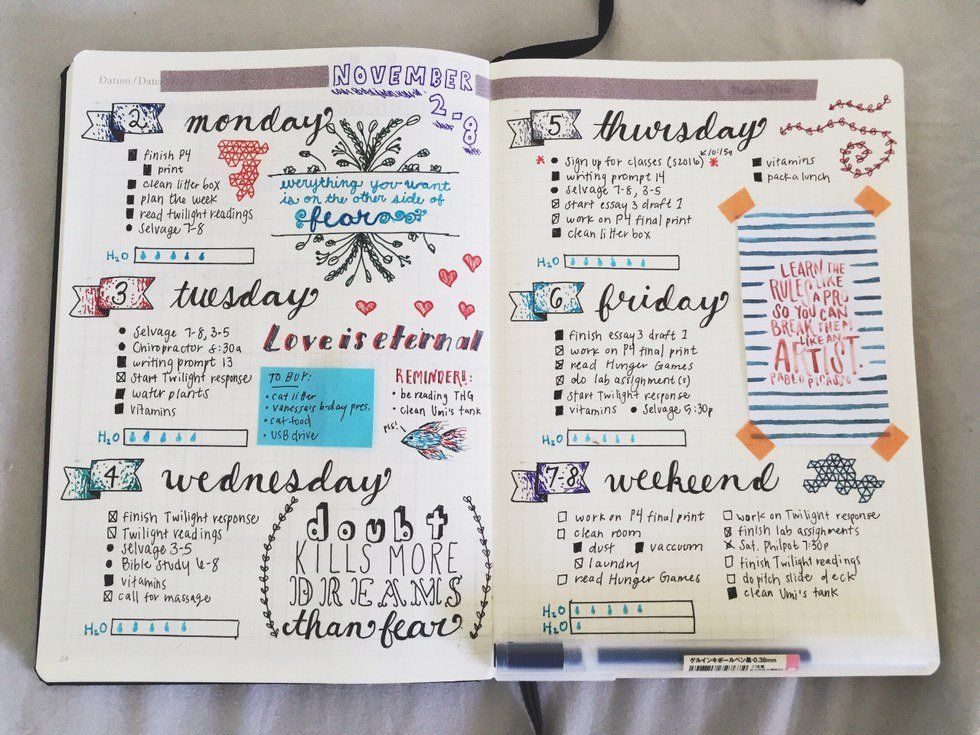 Datum / Date
NOVEMBER
2-8
2
monday
finish P4
print
clean litter box
plan the week
read twilight readings
Selvage 7-8
H2O
everything you want
is on the other side of
fear
3
tuesday
Selvage 7-8, 3-5
Chiropractor 8:30a
writing prompt 13
Start Twilight response
water plants
vitamins
H2O
Love is eternal
TO BUY:
• cat litter
• vanessa's b-day pres.
• cat food
• USB drive
REMINDER!!:
• be reading THG
• clean Umi's tank
pls!
4
wednesday
finish Twilight response
Twilight readings
Selvage 3-5
Bible Study 6-8
vitamins
call for massage
H2O
doubt
KILLS MORE
DREAMS
than fear
24
Datum / Date
5
thursday
10:15a
* Sign up for classes (S2016) *
writing prompt 14
Selvage 7-8, 3-5
start essay 3 draft 1
work on P4 final print
clean litter box
vitamins
pack a lunch
H2O
6
friday
finish essay 3 draft 1
work on P4 final print
read Hunger Games
do lab assignment(s)
start Twilight response
vitamins • Selvage 5:30p
H2O
LEARN THE
RULES LIKE
A PRO
SO YOU CAN
BREAK THEM
LIKE AN
ARTIST.
PABLO PICASSO
7-8
weekend
work on P4 final print
clean room
dust
vaccuum
laundry
read Hunger Games
work on Twilight response
finish lab assignments
Sat. Philpot 7:30p
finish Twilight readings
do pitch slide deck
clean Umi's tank
H2O
H2O
ゲルインキボールペン黒・0.38mm